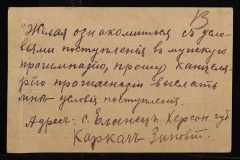 13
"Желая ознакомиться съ усло-
віями поступленія въ мужскую
прогимназію, прошу канцеля-
рію прогимназіи выслать
мнѣ условія поступленія.
Адресъ: с. Еланецъ, Херсон губ
Каркачъ